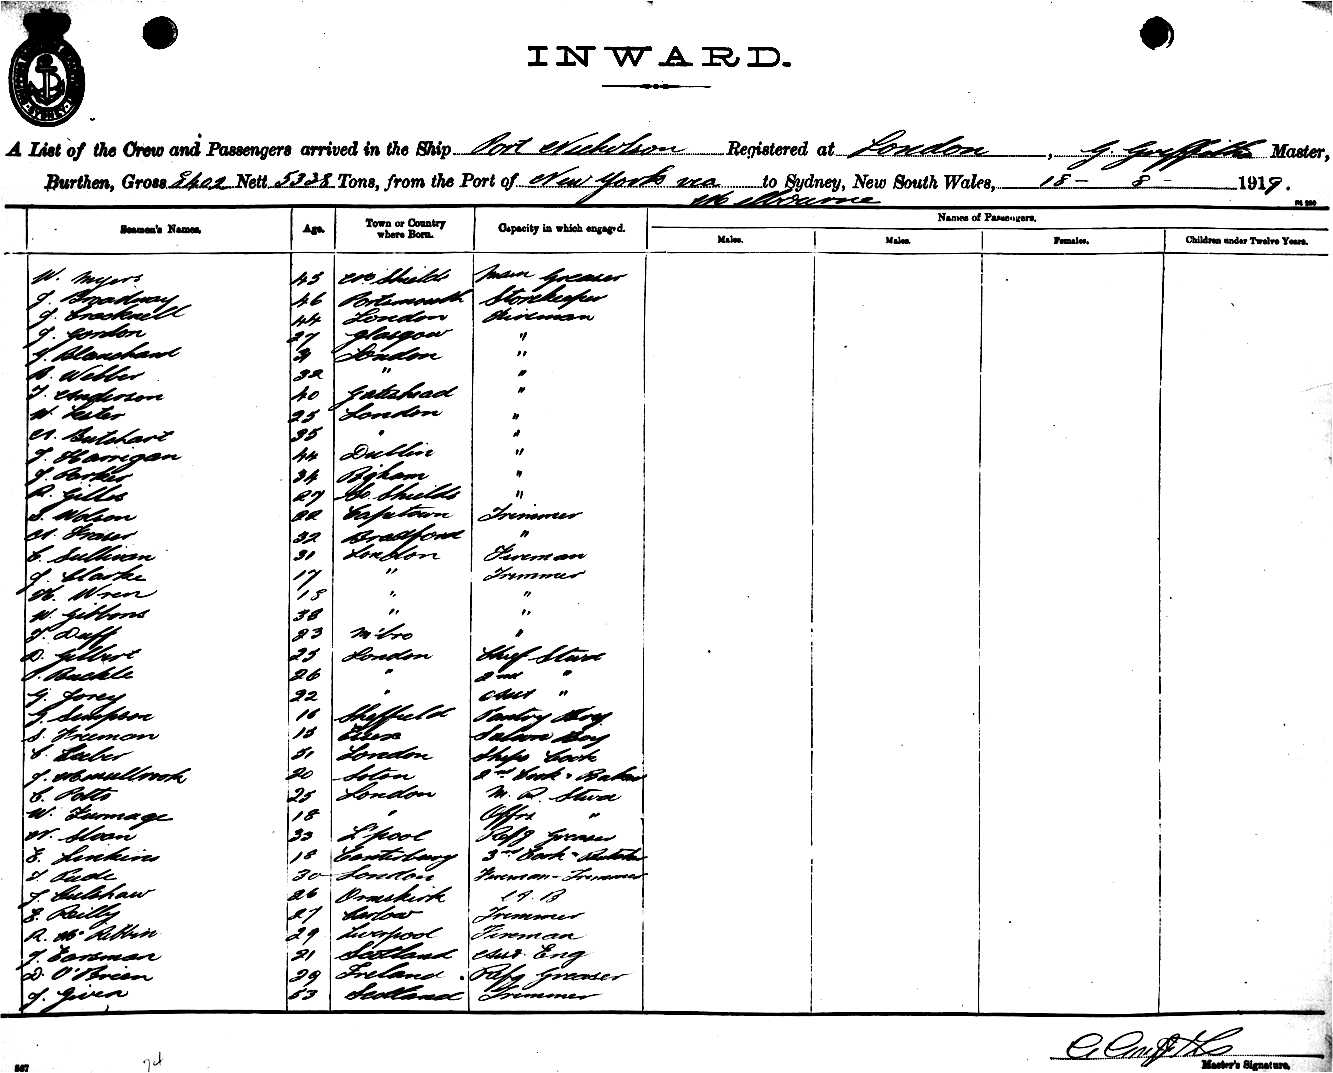 INWARD.
A List of the Crew and Passengers arrived in the Ship Port Nicholson Registered at London, G. Griffiths Master,
Burthen, Gross 8402 Nett 5338 Tons, from the Port of New York via Melbourne to Sydney, New South Wales, 18 - 8 - 1919.
Seamen's Names. Age. Town or Country where Born. Capacity in which engaged. Names of Passengers.
Males. Males. Females. Children under Twelve Years.
W. Myers 45 Shields Main Greaser
J. Broadway 46 Portsmouth Storekeeper
J. Cracknell 44 London Fireman
J. Gordon 27 Glasgow "
J. Blanchard London "
Webber 32 " "
T. Anderson 40 Gateshead "
W. Lester 25 London "
Butchart 35 " "
J. Harrigan 44 Dublin "
J. Parker 34 "
R. Gilles 27 So Shields "
S. Wolson 22 Capetown Trimmer
Fraser 32 Bradford "
C. Sullivan 31 London Fireman
J. Clarke 17 " Trimmer
Wren 18 " "
W. Gibbons 38 " "
J. Duff 23 M'bro "
D. Gilbert 25 London Chief Stwd
Buckle 26 " 2nd "
G. 22 " Asst "
G. Simpson 16 Sheffield Pantry Boy
S. Freeman 18 Essex Saloon Boy
C. 51 London Ships Cook
J. 20 Soton 2nd Cook & Baker
C. Potts 25 London M. R. Stwd
W. Turmage 18 " Offrs "
W. Sloan 33 L'pool Refg Greaser
E. Jenkins 18 Canterbury 3rd Cook & Butcher
T. Rude 30 London Fireman - Trimmer
J. Culshaw 26 Ormskirk A B
E. Reilly 27 Carlow Trimmer
R. Mc Robbin 29 Liverpool Fireman
J. Earsman 21 Scotland Asst. Eng
D. O'Brien 29 Ireland. Refg Greaser
J. Given 53 Scotland Trimmer
G Griffiths
Master's Signature.